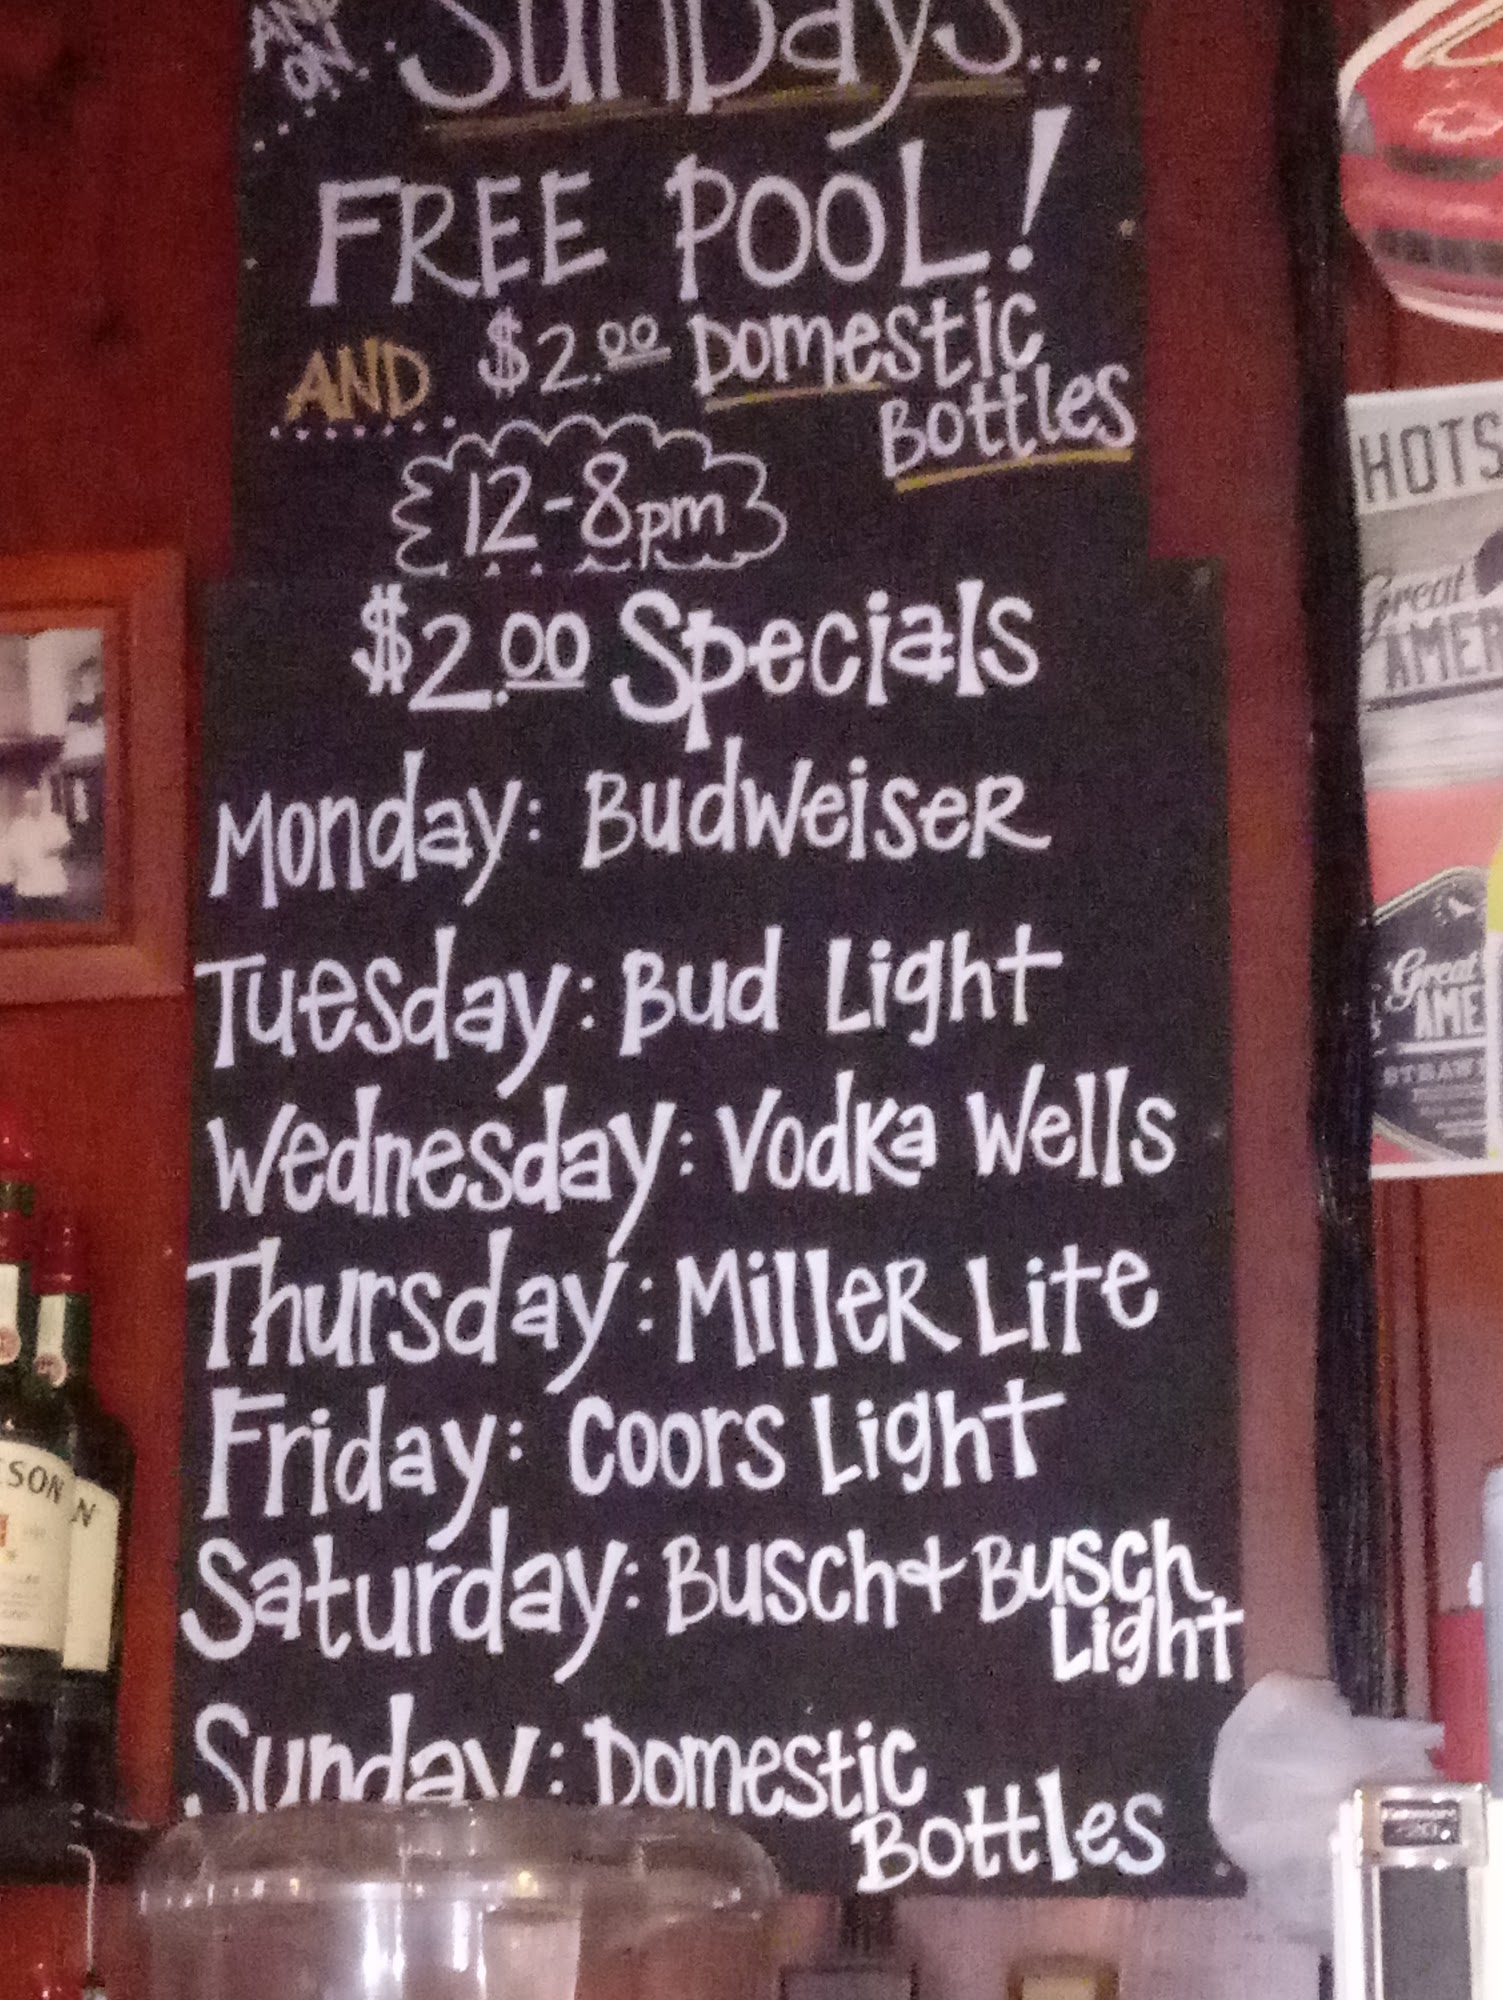 AND
ON
Sundays...
FREE POOL!
AND $2.00 Domestic
Bottles
12-8pm
$2.00 Specials
Monday: Budweiser
Tuesday: Bud Light
Wednesday: Vodka Wells
Thursday: Miller Lite
Friday: Coors Light
Saturday: Busch & Busch
Light
Sunday: Domestic
Bottles
HOTS
Great
AMER
Great
AME
STRAW
SON
N